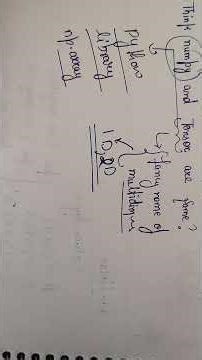 Think (numpy) and Tensor are same?
Python
library
np.array
Fancy name of
multidim
1D, 2D